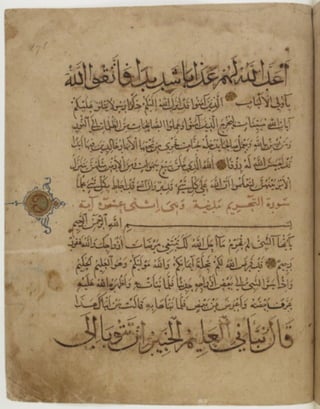 أعد الله لهم عذابا شديدا فاتقوا الله
يأولي الألباب الذين آمنوا قد أنزل الله إليكم ذكرا رسولا يتلو عليكم
آيات الله مبينات ليخرج الذين آمنوا وعملوا الصالحات من الظلمات إلى النور
ومن يؤمن بالله ويعمل صالحا يدخله جنات تجري من تحتها الأنهار خالدين فيها أبدا
قد أحسن الله له رزقا الله الذي خلق سبع سموات ومن الأرض مثلهن يتنزل
الأمر بينهن لتعلموا أن الله على كل شيء قدير وأن الله قد أحاط بكل شيء علما
سورة التحريم مدنية وهي اثنتي عشرة آية
بسم الله الرحمن الرحيم
يأيها النبي لم تحرم ما أحل الله لك تبتغي مرضات أزواجك والله غفور
رحيم قد فرض الله لكم تحلة أيمانكم والله موليكم وهو العليم الحكيم
وإذ أسر النبي إلى بعض أزواجه حديثا فلما نبأت به وأظهره الله عليه
عرف بعضه وأعرض عن بعض فلما نبأها به قالت من أنبأك هذا
قال نبأني العليم الخبير إن تتوبا إلى